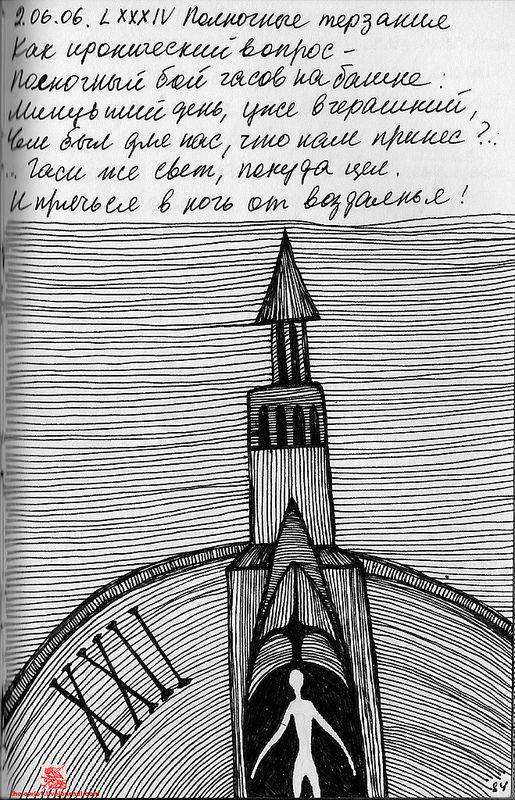 2.06.06. LXXXIV Полночные терзания
Как иронический вопрос –
Полночный бой часов на башне:
Минувший день, уже вчерашний,
Чем был для нас, что нам принес?..
... Гаси же свет, покуда цел.
И прячься в ночь от воздаянья!
XXII
84